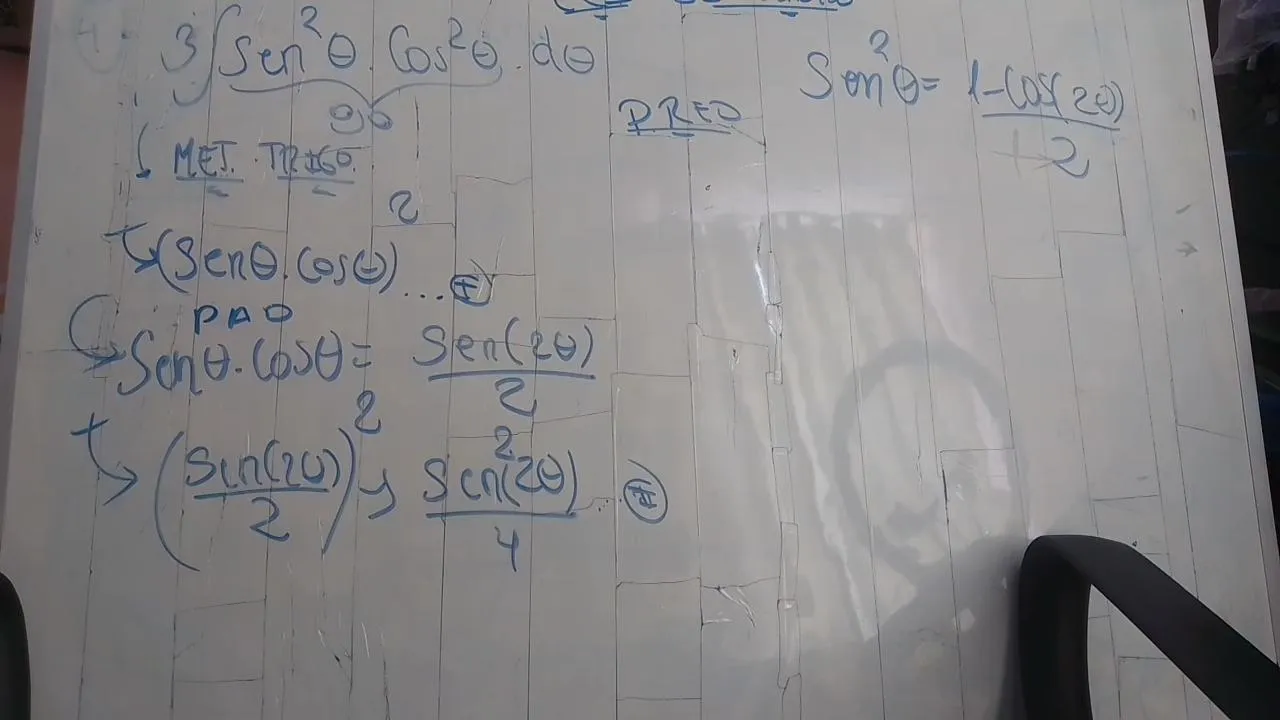 3∫Sen²θ.Cos²θ.dθ
MET. TRIGO.
(Senθ.Cosθ)² ...(*)
PAO
Senθ.Cosθ= Sen(2θ)/2
(Sen(2θ)/2)² y Sen²(2θ)/4 ...(#)
PRED
Sen²θ= 1-Cos(2θ)/2